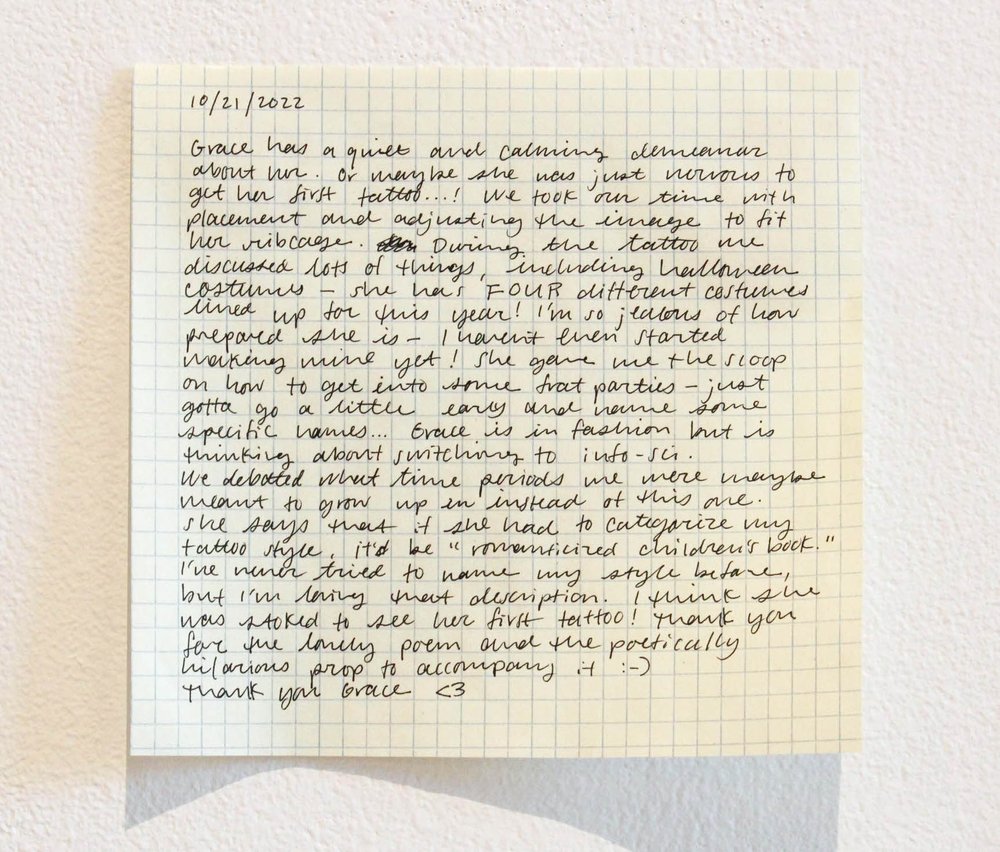 10/21/2022
Grace has a quiet and calming demeanor
about her. Or maybe she was just nervous to
get her first tattoo...! We took our time with
placement and adjusting the image to fit
her ribcage. During the tattoo we
discussed lots of things, including halloween
costumes – she has FOUR different costumes
lined up for this year! I'm so jealous of how
prepared she is – I haven't even started
making mine yet! She gave me the scoop
on how to get into some frat parties – just
gotta go a little early and name some
specific names... Grace is in fashion but is
thinking about switching to info-sci.
We debated what time periods we were maybe
meant to grow up in instead of this one.
She says that if she had to categorize my
tattoo style, it'd be "romanticized children's book."
I've never tried to name my style before,
but I'm loving that description. I think she
was stoked to see her first tattoo! Thank you
for the lovely poem and the poetically
hilarious prop to accompany it :-)
Thank you Grace <3